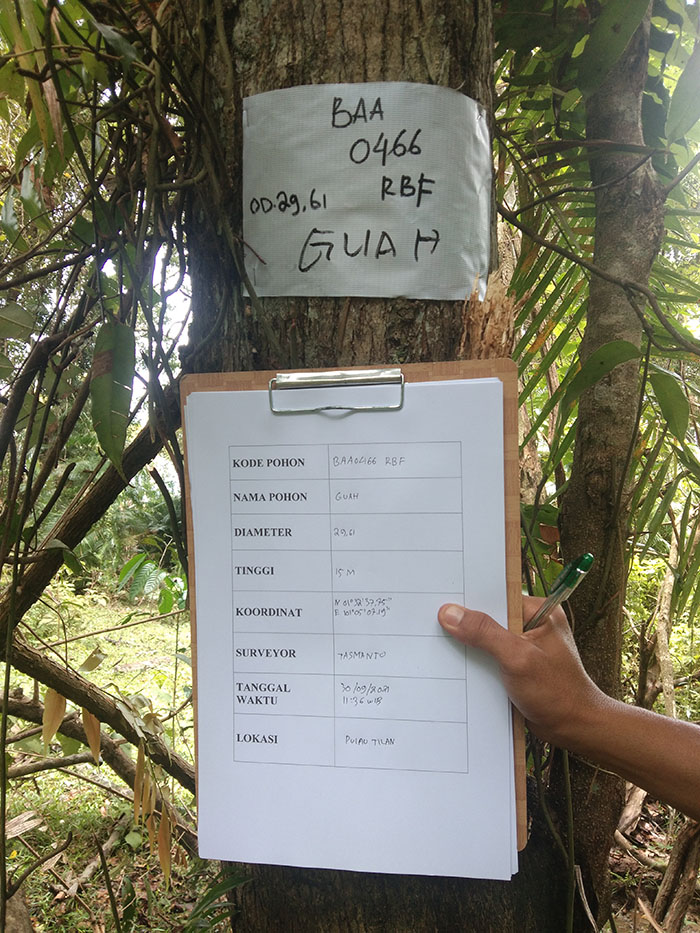 BAA
0466
RBF
OD.29,61
GUAH
KODE POHON BAA0466 RBF
NAMA POHON GUAH
DIAMETER 29,61
TINGGI 15 M
KOORDINAT N 01°32'37,75"
E 101°05'07.19"
SURVEYOR TASMANTO
TANGGAL WAKTU 30/09/2021
11:36 WIB
LOKASI PULAU TILAN